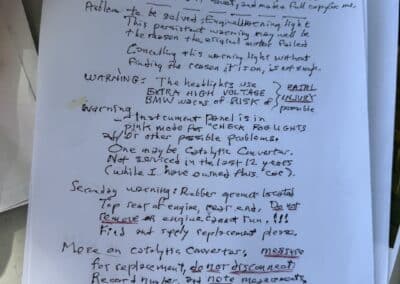 and make full copy for me.
Problem to be solved: Engine warning light
This persistent warning may well be
the reason the original motor failed
Cancelling this warning light without
finding the reason it is on, is not
WARNING: The headlights use
EXTRA HIGH VOLTAGE
BMW warns of RISK of
FATAL
INJURY
possible
Warning
Instrument panel is in
pink mode for "CHECK FOG LIGHTS
or other possible problems.
One may be Catalytic Converter.
Not serviced in the last 12 years
(while I have owned this car).
Secondary warning: Rubber located
Top rear of engine, rear end. Do not
remove or engine cannot run. !!!
Find and supply replacement please.
More on catalytic converter, measure
for replacement, do not disconnect
Record number, and note measurements